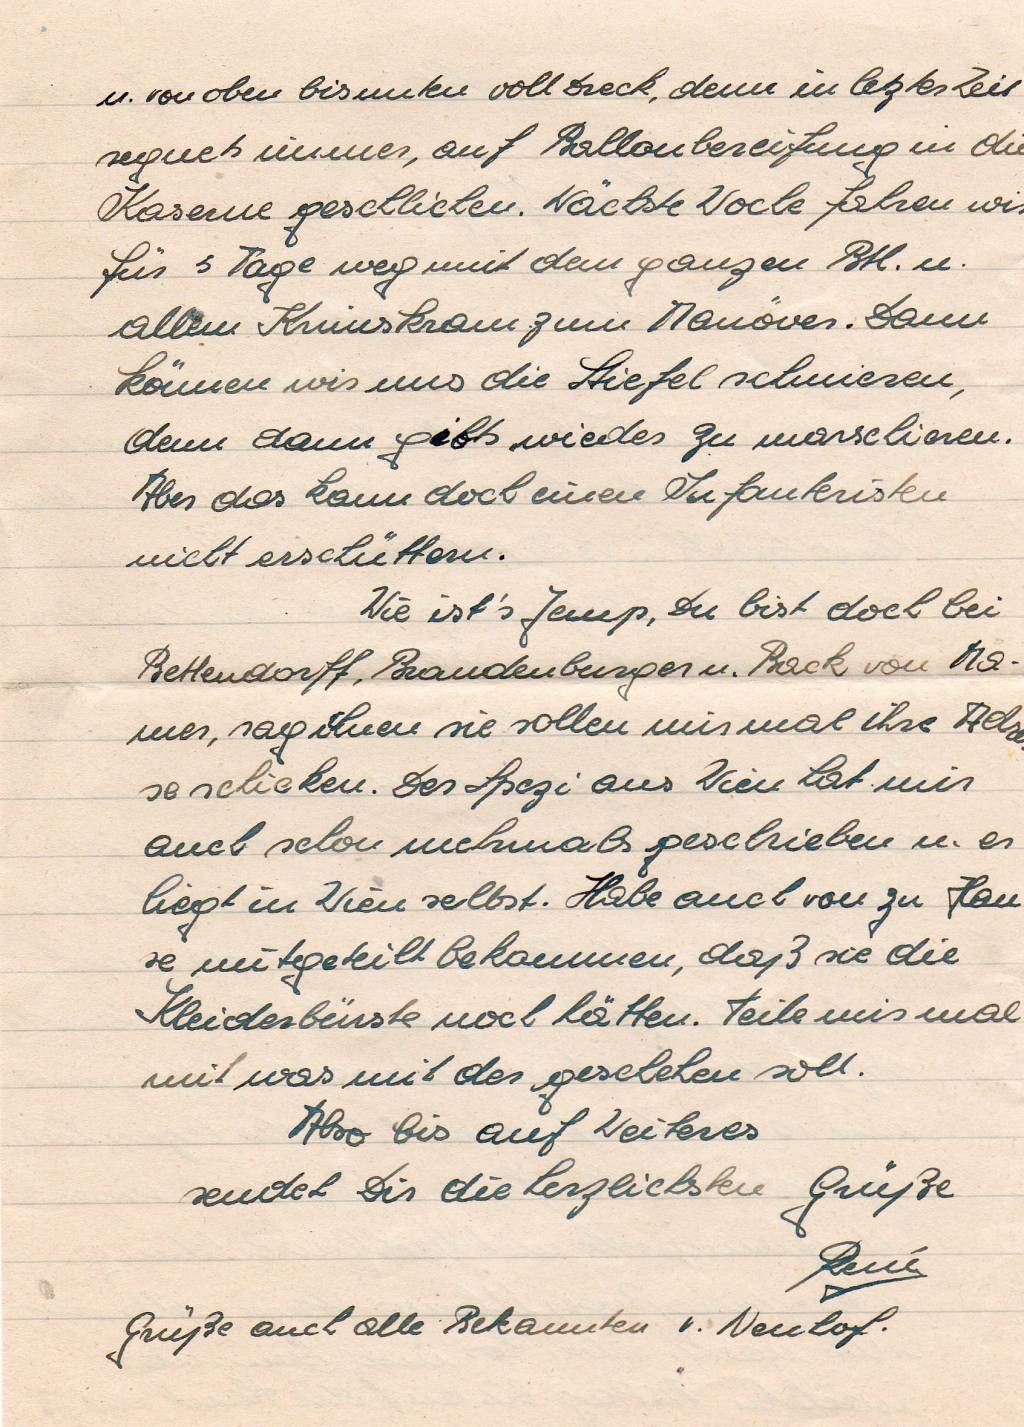 u. von oben bis unten voll Dreck, denn in letzter Zeit
regnets immer, auf Ballonbereifung in die
Kaserne geschlichen. Nächste Woche fahren wir
für 3 Tage weg mit dem ganzen Btl. u.
allem Krimskram zum Manöver. Dann
können wir uns die Stiefel schmieren,
denn dann gibts wieder zu marschieren.
Aber das kann doch einen Infanteristen
nicht erschüttern.
Wie ist's Jemp, Du bist doch bei
Bettendorff, Brandenburger u. Back von Ma-
mer, sag ihnen sie sollen mir mal ihre Adres
se schicken. Der Spezi aus Wien hat mir
auch schon mehrmals geschrieben u. er
liegt in Wien selbst. Habe auch von zu Hau
se mitgeteilt bekommen, daß sie die
Kleiderbürste noch hätten. Teile mir mal
mit was mit der geschehen soll.
Also bis auf Weiteres
sendet Dir die herzlichsten Grüße
René
Grüße auch alle Bekannten v. Neuhof.